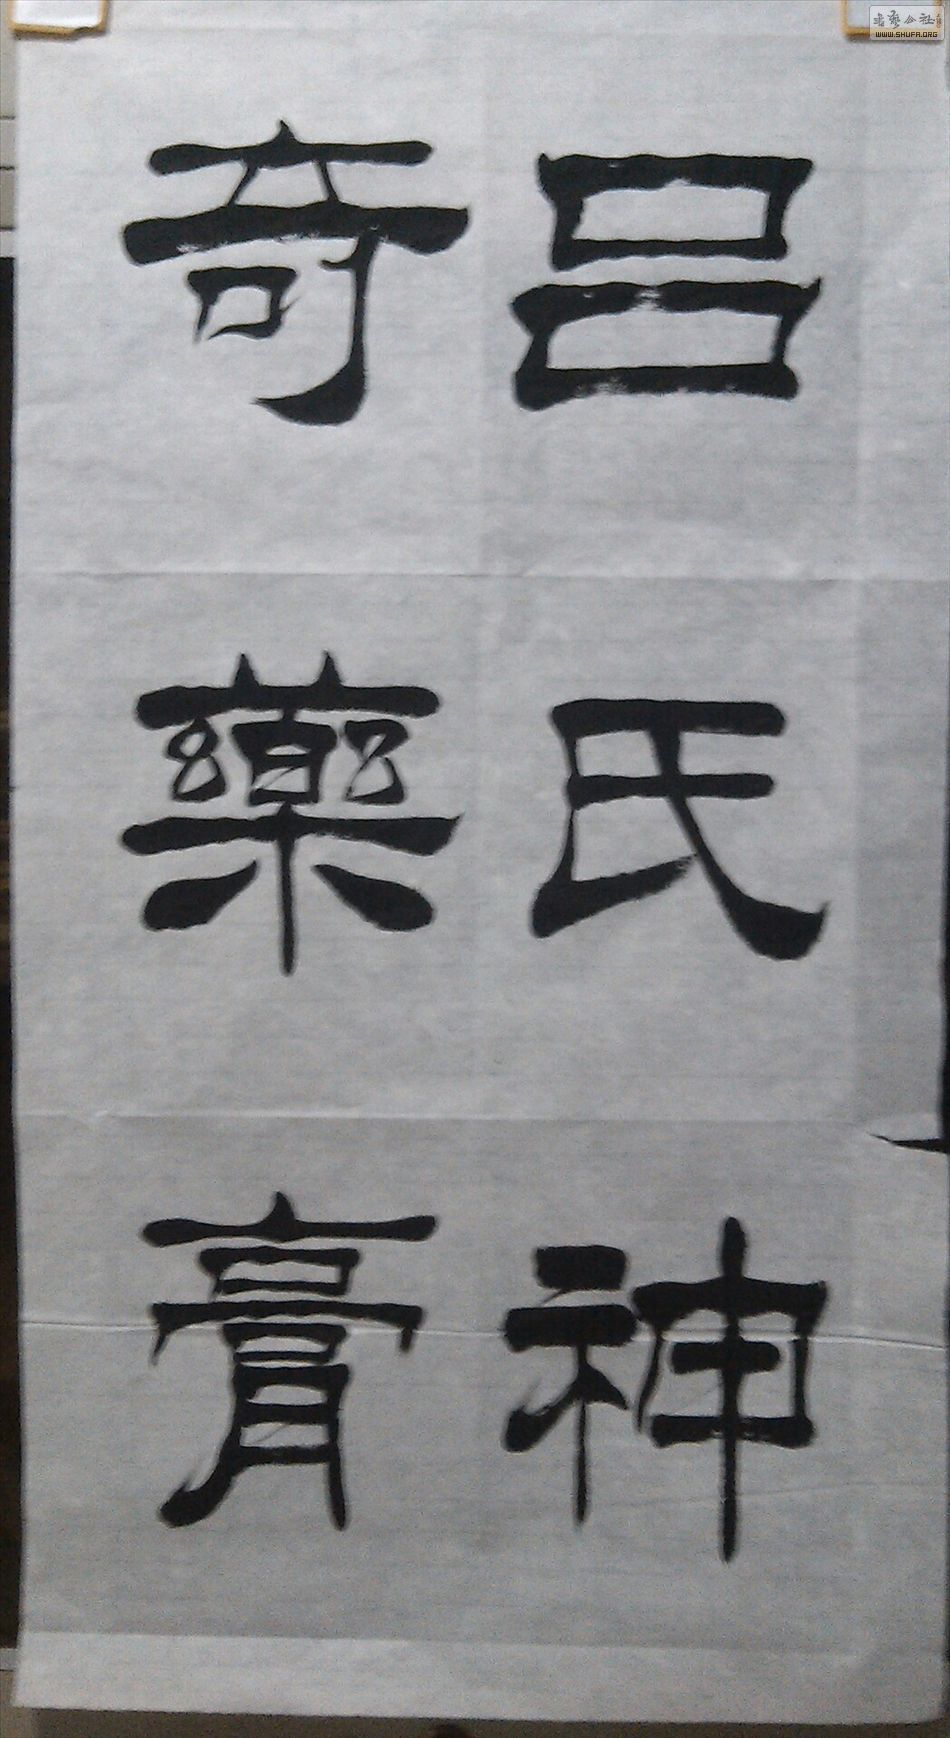 呂氏神
奇藥膏
書藝公社
WWW.SHUFA.ORG